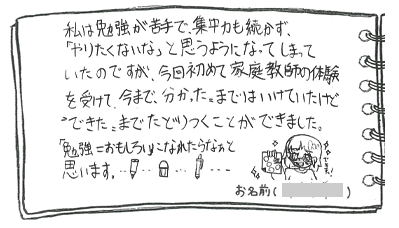 私は勉強が苦手で、集中力も続かず、
「やりたくないな」と思うようになってしまって
いたのですが、今回初めて家庭教師の体験
を受けて、今まで、分かった。まではいけていたけど
"できた。までたどりつくことができました。
「勉強=おもしろい」になれたらなぁと
思います。…
お名前(          )